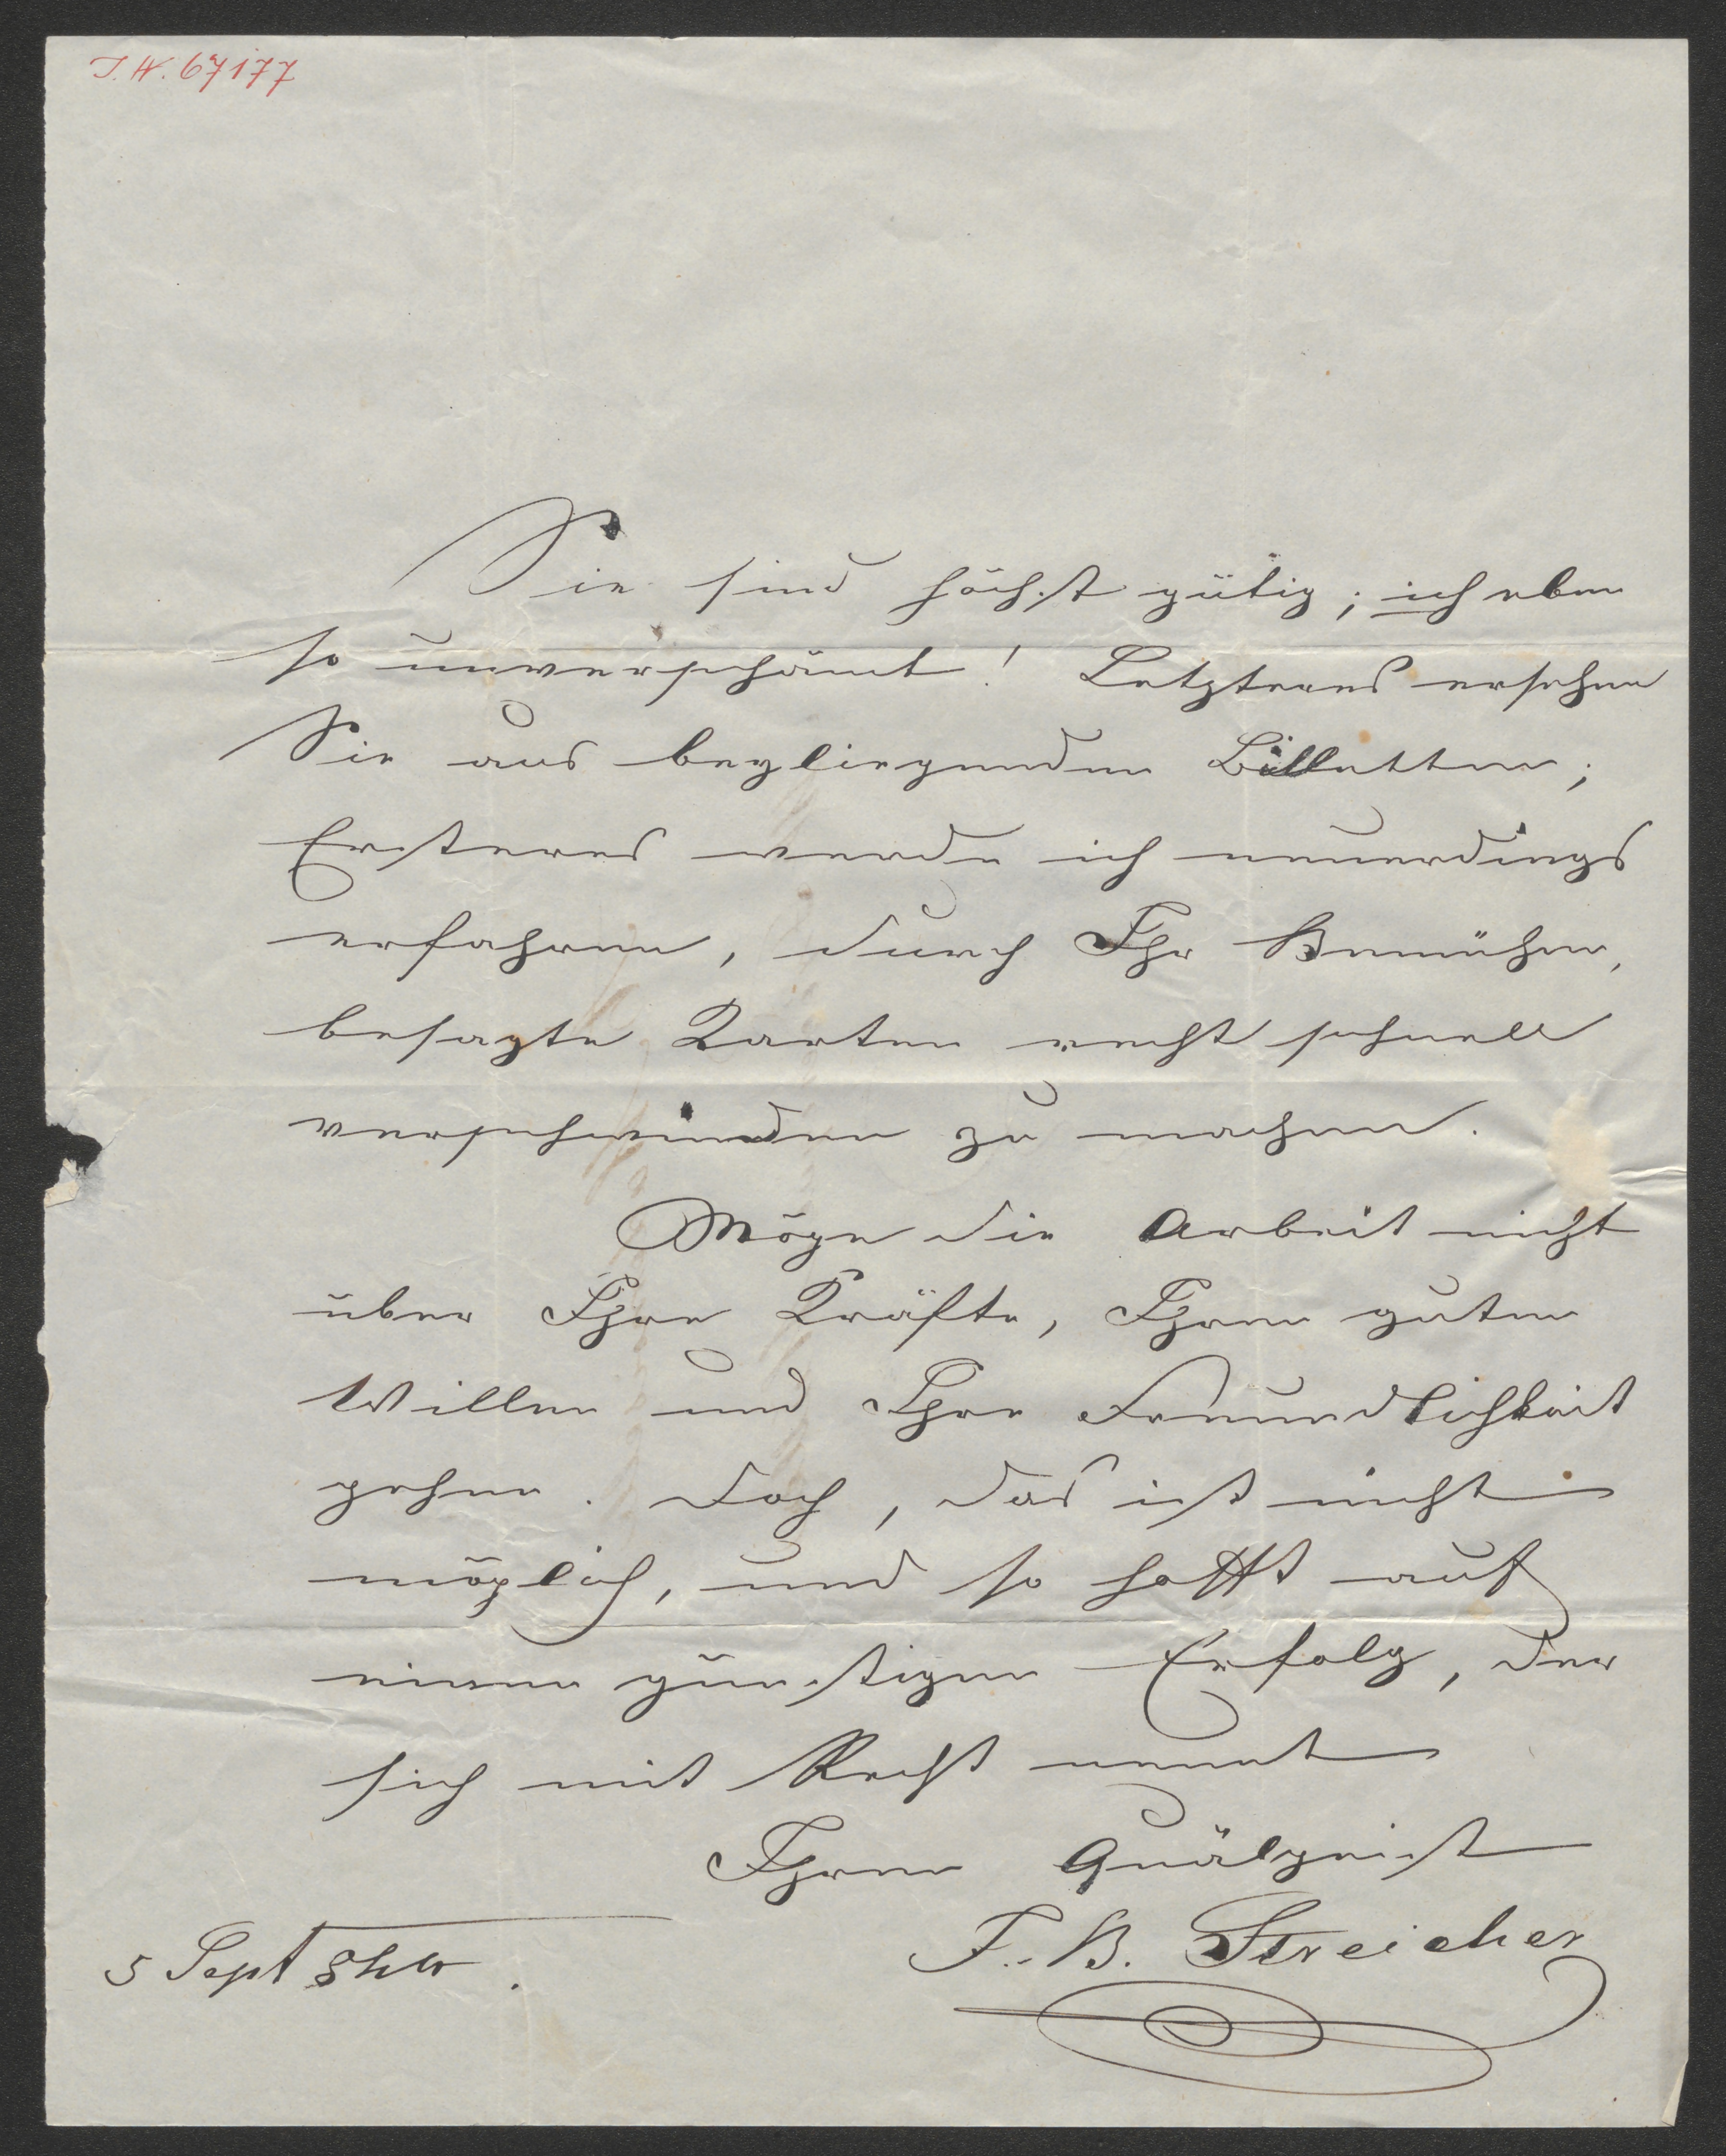 I.N. 67177
Sie sind höchst gütig; ich eben
so unverschämt! Letzteres ersehen
Sie aus beyliegenden Billetten;
Ersteres werde ich neuerdings
erfahren, durch Ihr Bemühen,
besagte Karten recht schnell
verschwinden zu machen.
Möge die Arbeit nicht
über Ihre Kräfte, Ihren guten
Willen und Ihre Freundlichkeit
gehen. Doch, das ist nicht
möglich, und so hofft auf
einen günstigen Erfolg, der
sich mit Recht nennt
Ihren Quälgeist
J. B. Streicher
5 Sept